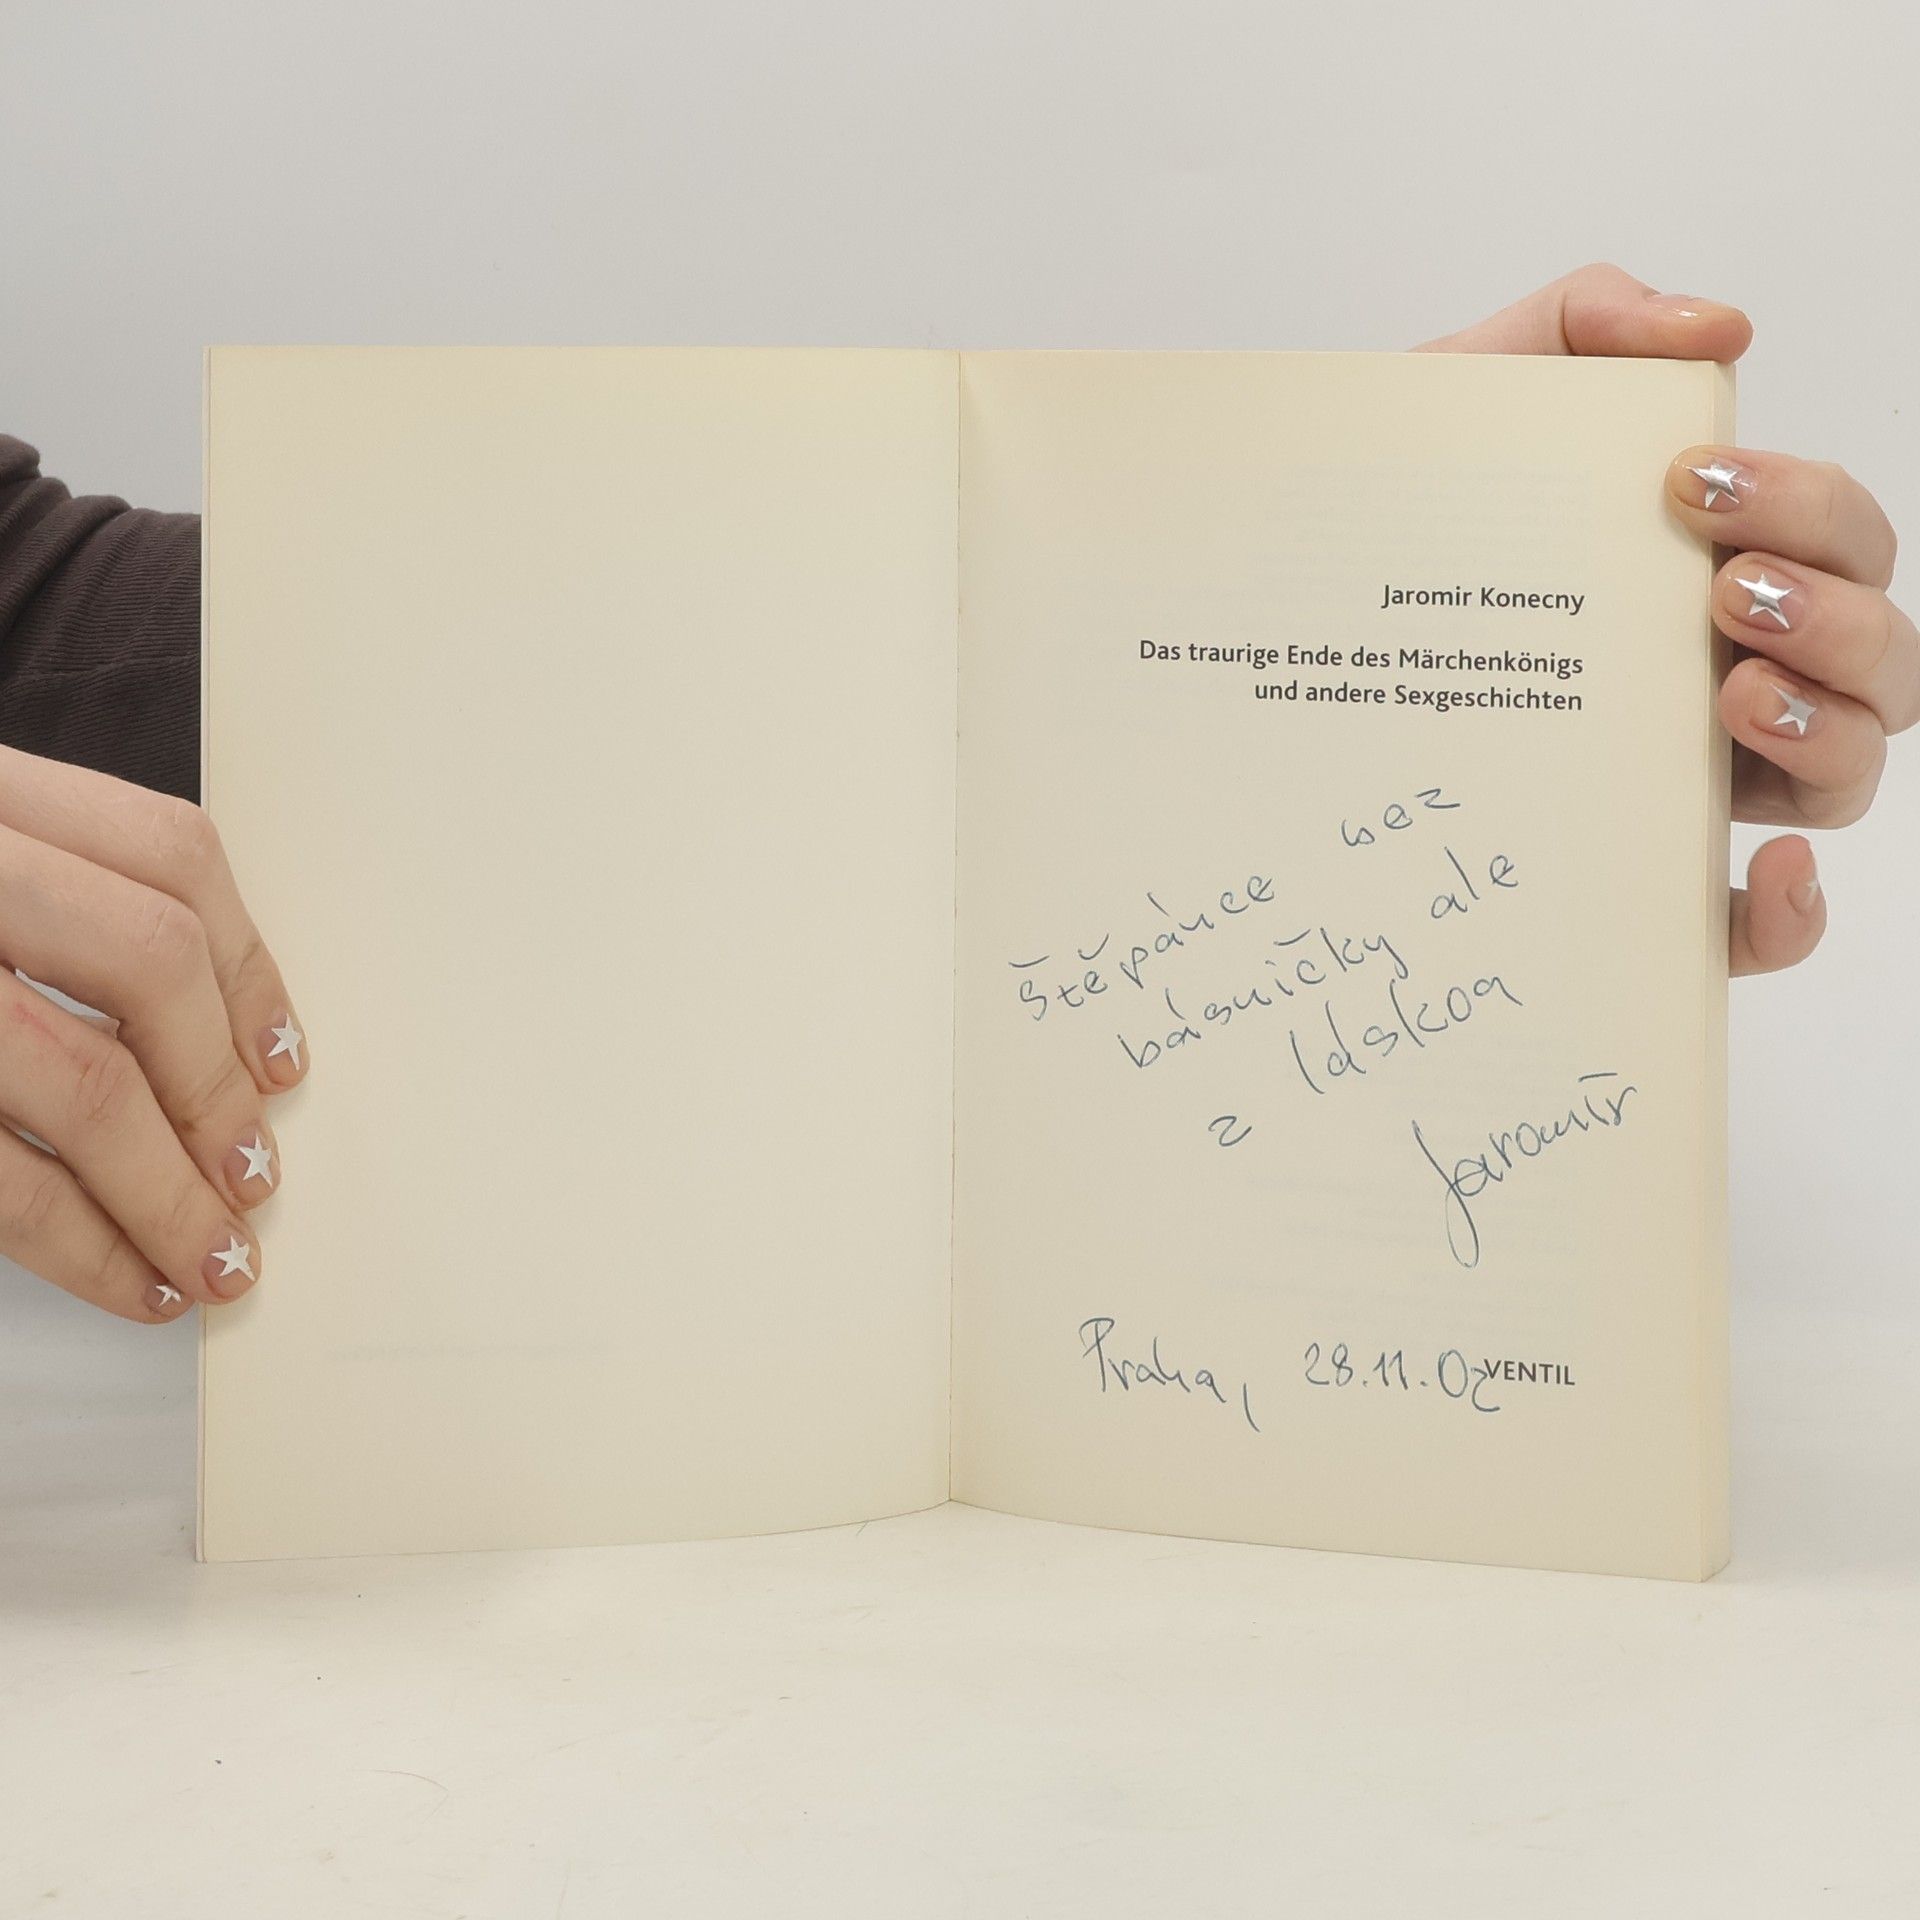 Jaromir Konecny
Das traurige Ende des Märchenkönigs
und andere Sexgeschichten
Štěpánce bez
básničky ale
z láskou
Jaromír
Praha, 28.11.02
VENTIL